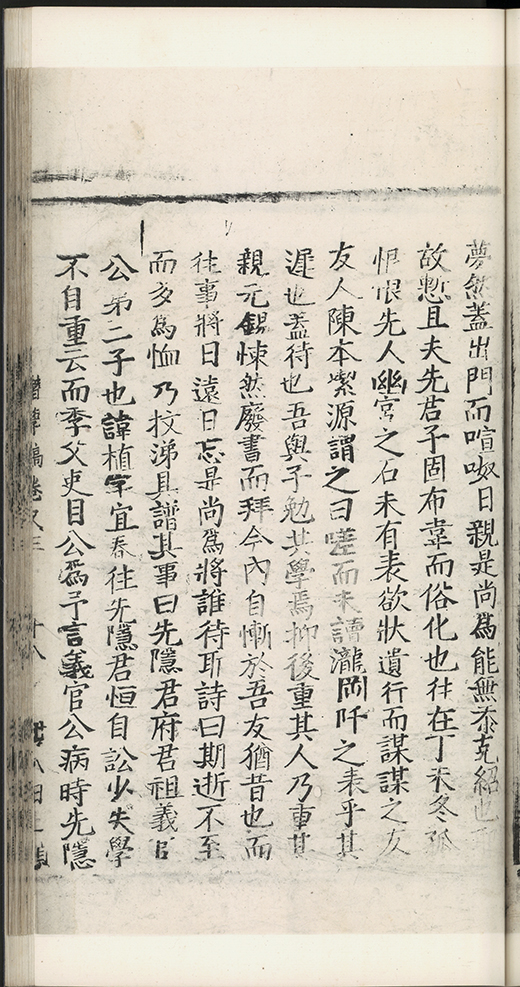 夢然蓋出門而喧呶日親是尚為能無忝克紹也
故慙且夫先君子固布韋而俗化也往在丁未冬孤
悵恨先人幽宮之石未有表欲狀遺行而謀謀之友
友人陳本潔源謂之曰嗟而未讀瀧岡阡之表乎其
遲也蓋待也吾與子勉其學焉抑後重其人乃重其
親元錫悚然廢書而拜今內自慚於吾友猶昔也而
往事將日遠日忘是尚為將誰待耶詩曰期逝不至
而多為恤乃抆涕具譜其事曰先隱君府君祖義官
公弟二子也諱植字宜春往先隱君恒自訟少失學
不自重云而季父吏目公為予言義官公病時先隱
潛學稿卷之三
十八